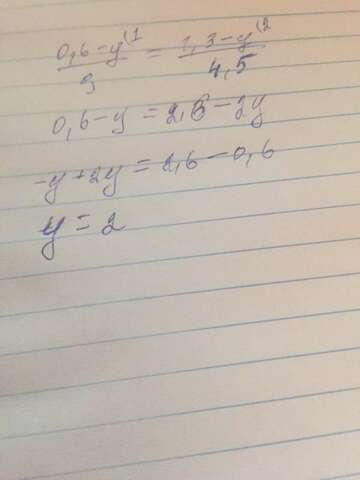 (0,6-y)/9 \1 = (1,3-y)/4,5 \2
0,6-y = 2,6-2y
-y+2y = 2,6-0,6
y = 2